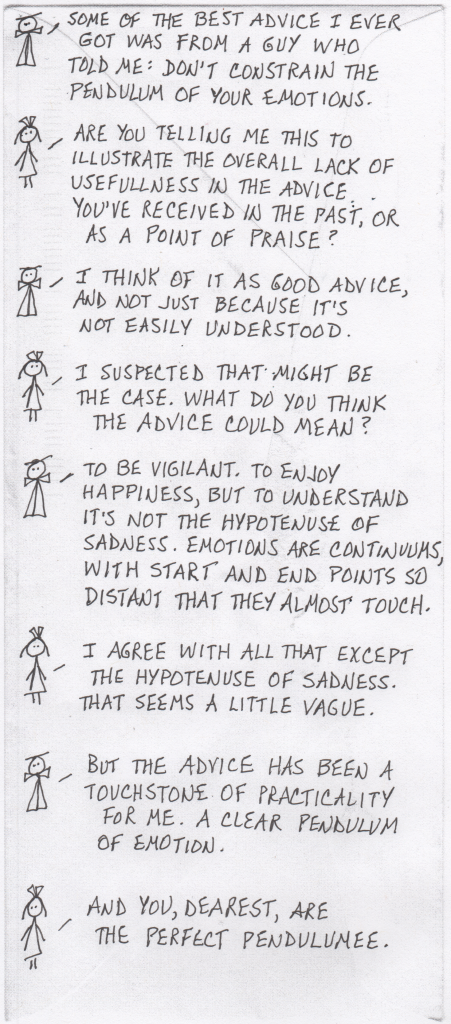 SOME OF THE BEST ADVICE I EVER
GOT WAS FROM A GUY WHO
TOLD ME: DON'T CONSTRAIN THE
PENDULUM OF YOUR EMOTIONS.
ARE YOU TELLING ME THIS TO
ILLUSTRATE THE OVERALL LACK OF
USEFULLNESS IN THE ADVICE
YOU'VE RECEIVED IN THE PAST, OR
AS A POINT OF PRAISE?
I THINK OF IT AS GOOD ADVICE,
AND NOT JUST BECAUSE IT'S
NOT EASILY UNDERSTOOD.
I SUSPECTED THAT MIGHT BE
THE CASE. WHAT DO YOU THINK
THE ADVICE COULD MEAN?
TO BE VIGILANT. TO ENJOY
HAPPINESS, BUT TO UNDERSTAND
IT'S NOT THE HYPOTENUSE OF
SADNESS. EMOTIONS ARE CONTINUUMS,
WITH START AND END POINTS SO
DISTANT THAT THEY ALMOST TOUCH.
I AGREE WITH ALL THAT EXCEPT
THE HYPOTENUSE OF SADNESS.
THAT SEEMS A LITTLE VAGUE.
BUT THE ADVICE HAS BEEN A
TOUCHSTONE OF PRACTICALITY
FOR ME. A CLEAR PENDULUM
OF EMOTION.
AND YOU, DEAREST, ARE
THE PERFECT PENDULUMEE.